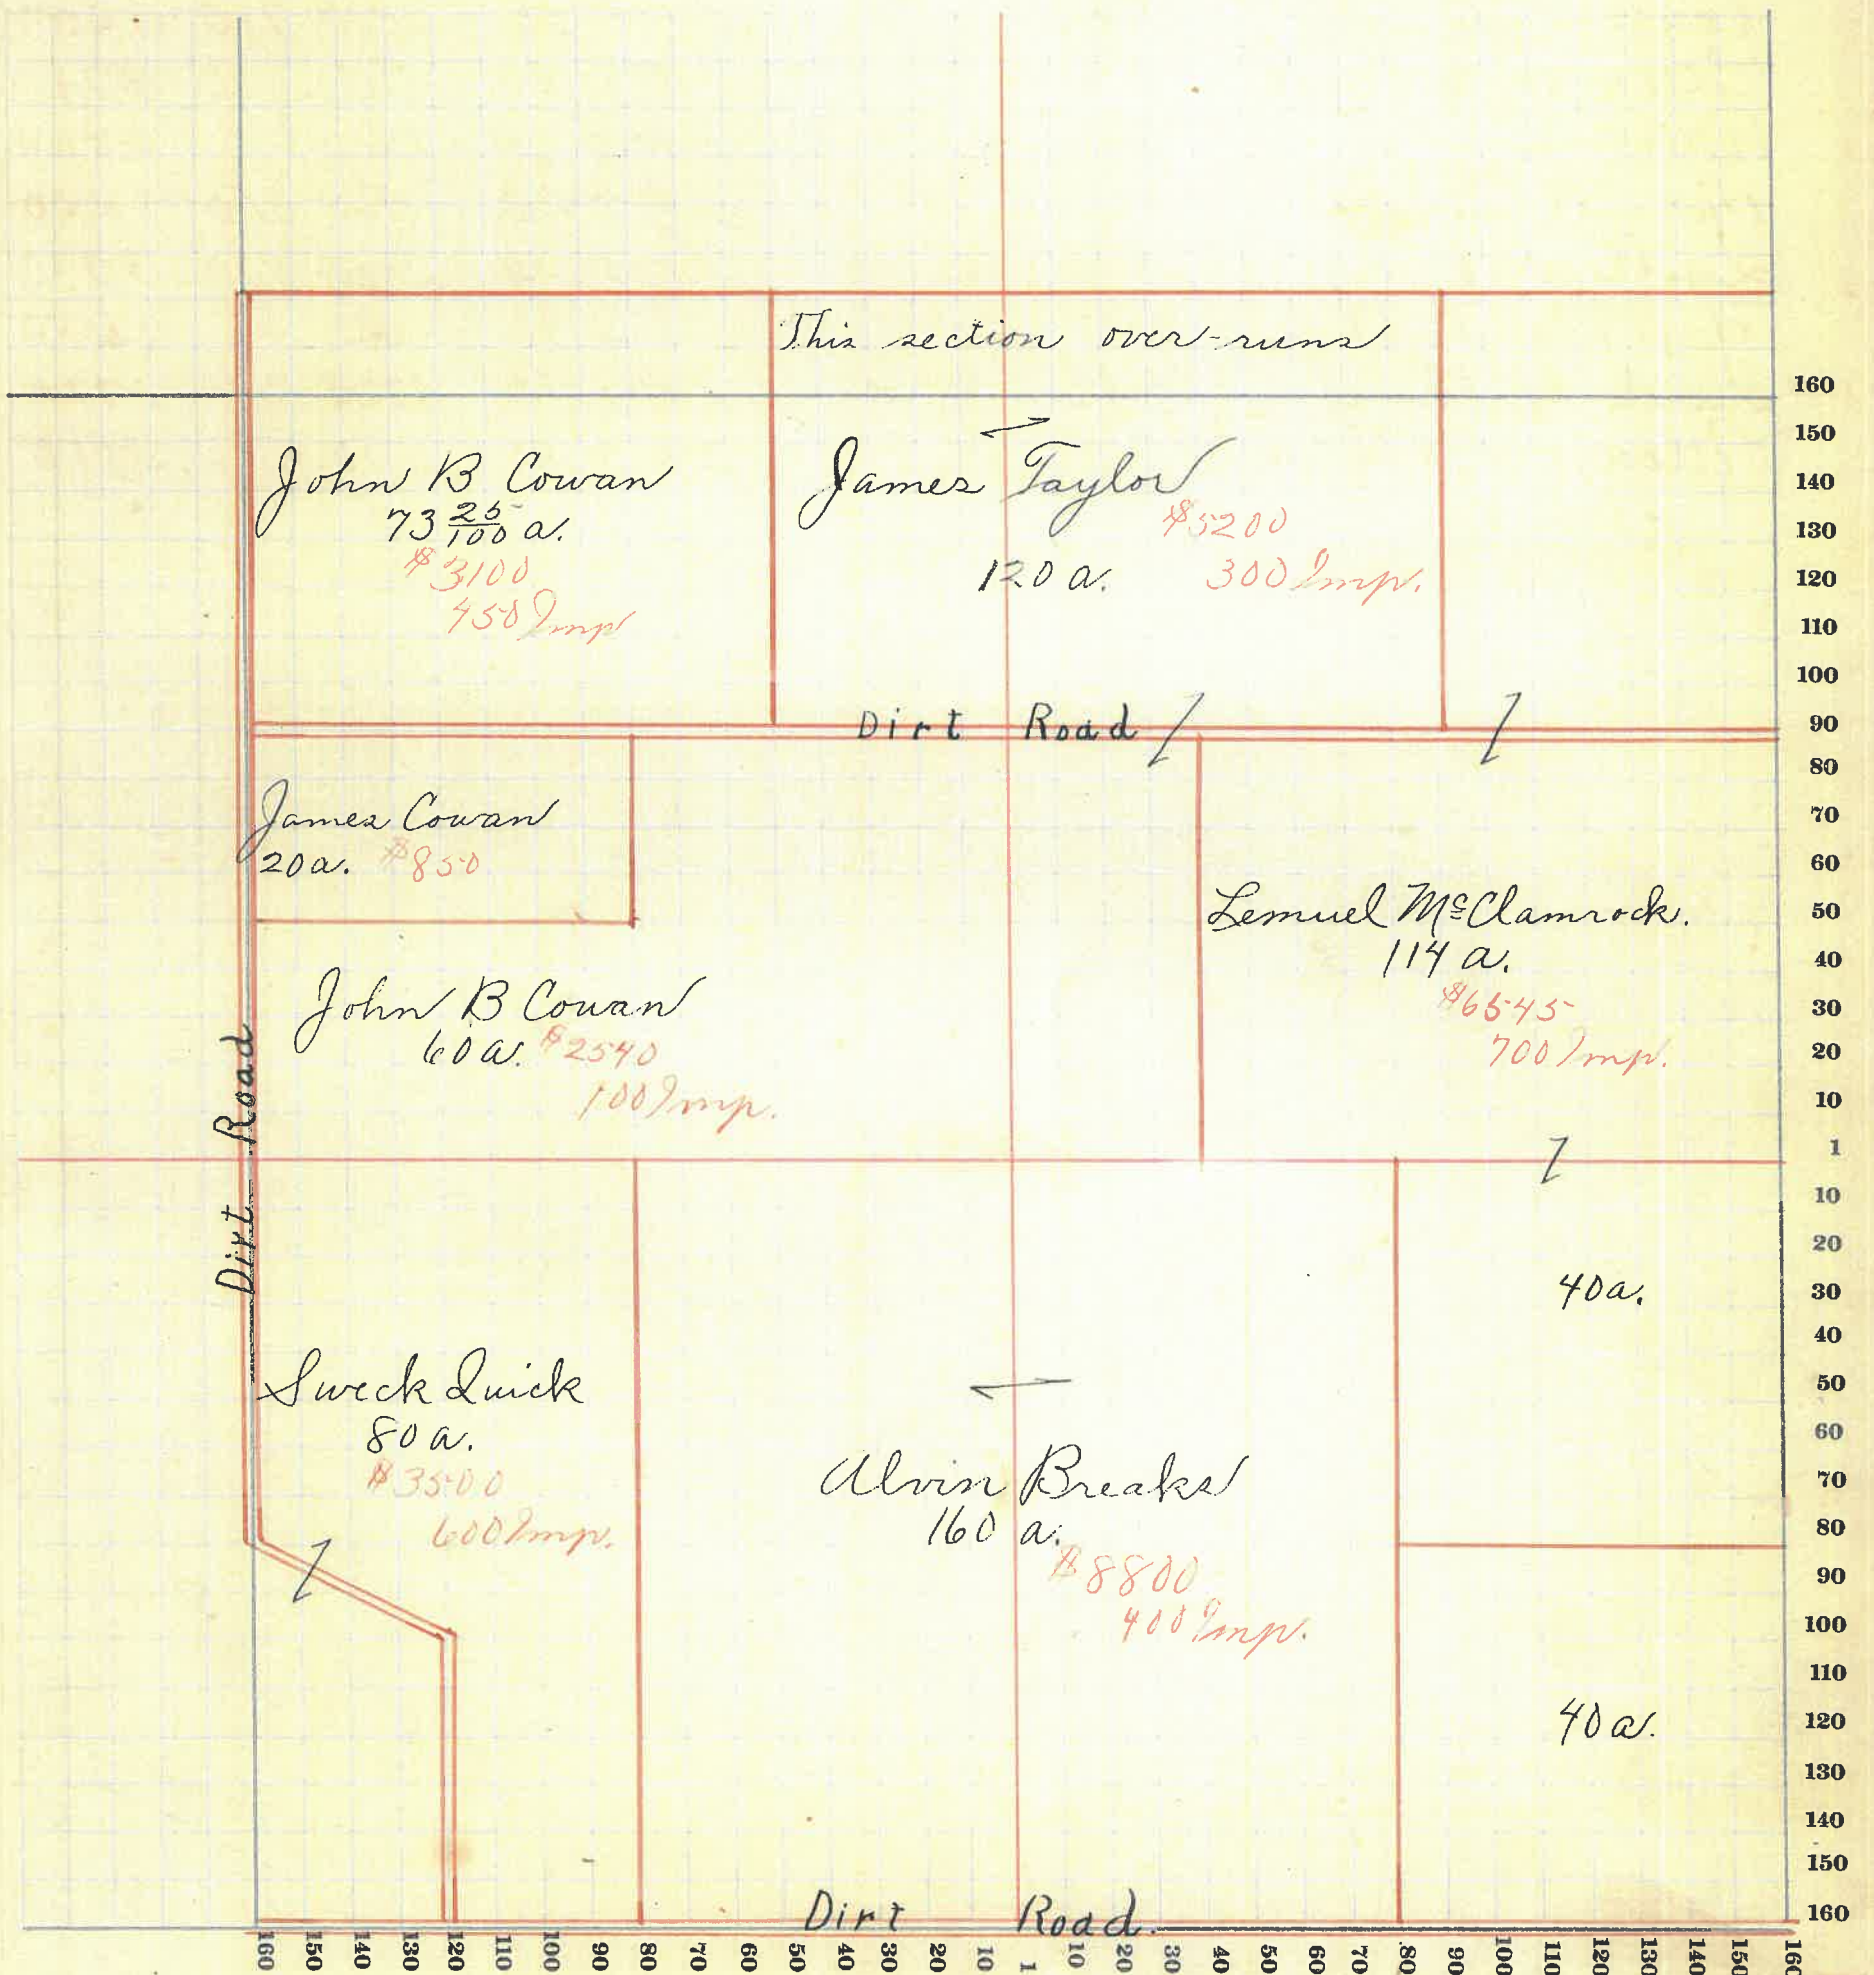 This section over-runs
John B Cowan
73 25/100 a.
$3100
450 Imp
James Taylor
$5200
120 a.
300 Imp.
Dirt Road
James Cowan
20 a. $850
John B Cowan
60 a. $2540
100 Imp.
Lemuel McClamrock.
114 a.
$6545
700 Imp.
Dirt Road
Sweck Quick
80 a.
$3500
600 Imp.
Alvin Breaks
160 a.
$8800
400 Imp.
40 a.
40 a.
Dirt Road
160
150
140
130
120
110
100
90
80
70
60
50
40
30
20
10
1
10
20
30
40
50
60
70
80
90
100
110
120
130
140
150
160
160 150 140 130 120 110 100 90 80 70 60 50 40 30 20 10 1 10 20 30 40 50 60 70 80 90 100 110 120 130 140 150 160